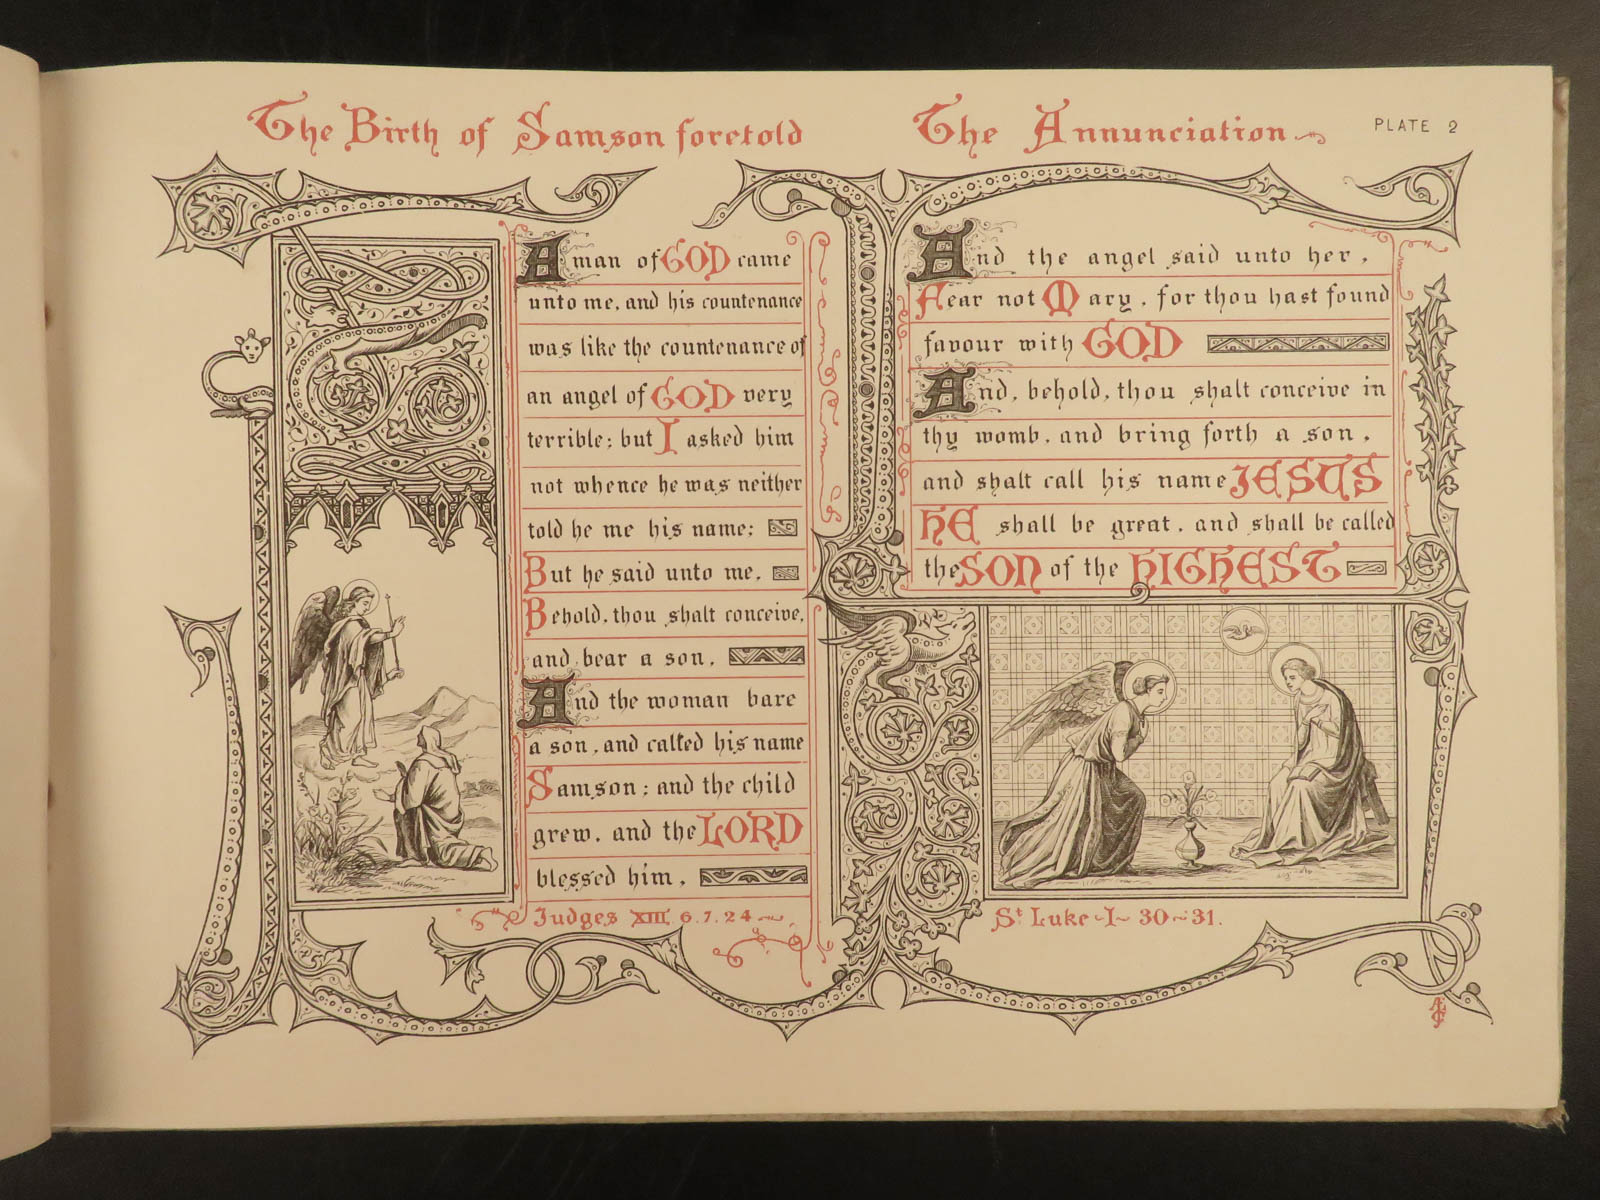 The Birth of Samson foretold
A man of GOD came
unto me, and his countenance
was like the countenance of
an angel of GOD very
terrible; but I asked him
not whence he was neither
told he me his name;
But he said unto me,
Behold, thou shalt conceive,
and bear a son.
And the woman bare
a son, and called his name
Samson; and the child
grew, and the LORD
blessed him.
Judges XIII 6. 7. 24
The Annunciation
PLATE 2
And the angel said unto her,
Fear not Mary, for thou hast found
favour with GOD
And, behold, thou shalt conceive in
thy womb, and bring forth a son,
and shalt call his name JESUS
HE shall be great, and shall be called
the SON of the HIGHEST
St Luke I 30~31.